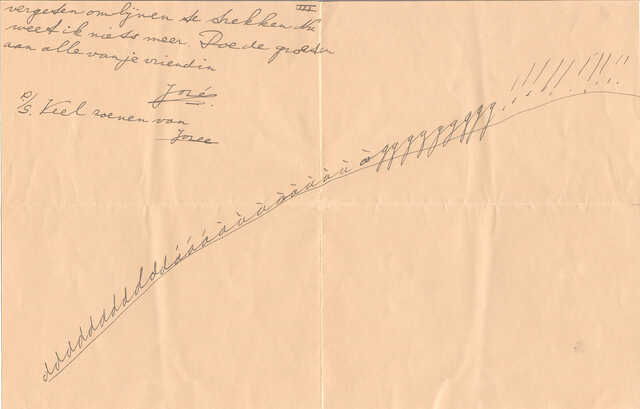 vergeten om lijnen te trekken. Nu III
weet ik niets meer. Doe de groeten
aan alle van je vriendin
José.
P/S. Veel zoenen van
Josee
ddddddddddddd áááàààààààààà àgggggggggg!!!!!!!!!!